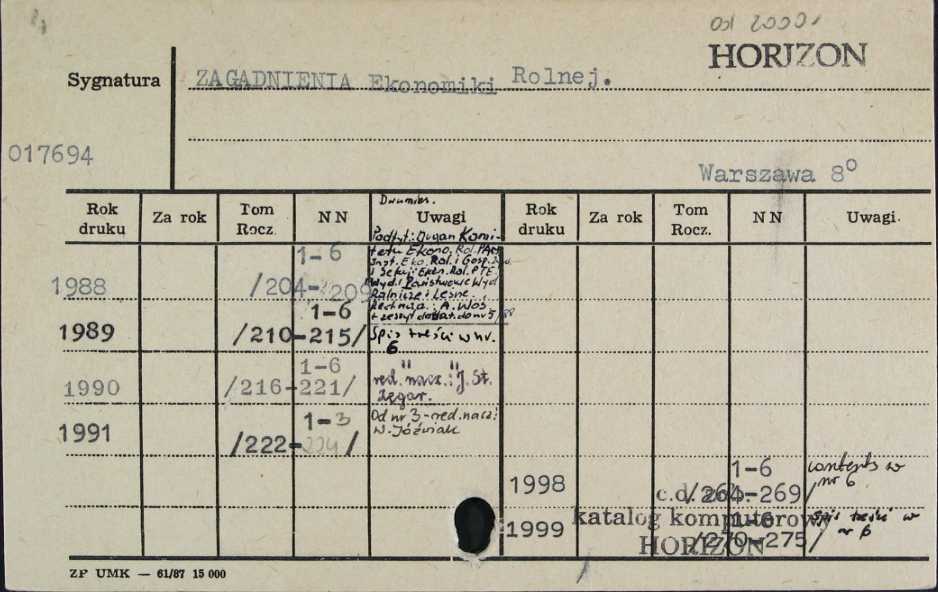 od 2000
HORIZON
Sygnatura
ZAGADNIENIA Ekonomiki Rolnej.
017694
Warszawa 8⁰
Rok druku
Za rok
Tom Rocz.
NN
Dwumies.
Uwagi
Rok druku
Za rok
Tom Rocz.
NN
Uwagi.
Podtyt.: Organ Komi-
tetu Ekono. Rol. PAN
Inst. Eko. Rol. i Gosp.
i Sekcji Ekon. Rol. PTE
Wyd.: Państwowe Wyd
Rolnicze i Leśne.
Redakcja: A. Woś
+ zeszyt dodat. do nr 5/88
1988 /204-209 1-6
1989 /210-215/ 1-6 Spis treści w nr. 6
1990 /216-221/ 1-6 " "
red. nacz.: J. St.
Zegar.
1991 /222-224/ 1-3 Od nr 3-red. nacz:
W. Jóźwiak
1998 /264-269/ 1-6 contents w nr 6
c.d. zob.
katalog komputerowy
HORIZON
1999 /270-275/ 1-6 Spis treści w nr 6
ZP UMK — 61/87 15 000